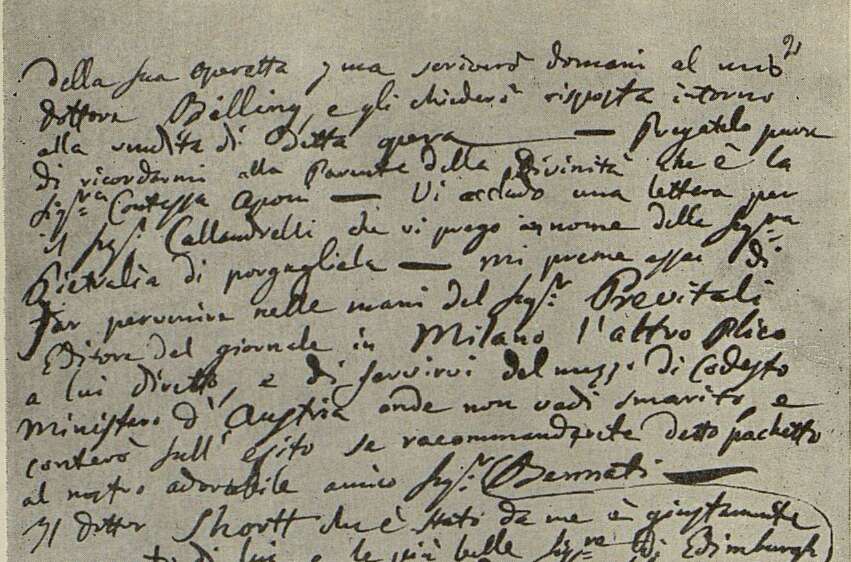 della sua operetta, ma scriverò domani al mio
dottore Billing, e gli chiederò risposta intorno
alla vendita di detta opera — Pregatelo pure
di ricordarmi alla Parente della Divinità che è la
Sigra Contessa Aponi — Vi accludo una lettera per
il Sigr Callandrelli che vi prego in nome della Sigra
Pietralia di porgagliela — mi preme assai di
far pervenire nelle mani del Sigr Previtali
Editore del giornale in Milano l'altro Plico
a lui diretto, e di servirvi del mezzo di Codesto
Ministero d'Austria onde non vadi smarito, e
conterò sull'esito se racommandarete detto pachetto
al nostro adorabile amico Sigr Bennati —
Il dottor Shortt che è stato da me è giustamente
di lui e le più belle Sigre di Edimburgh